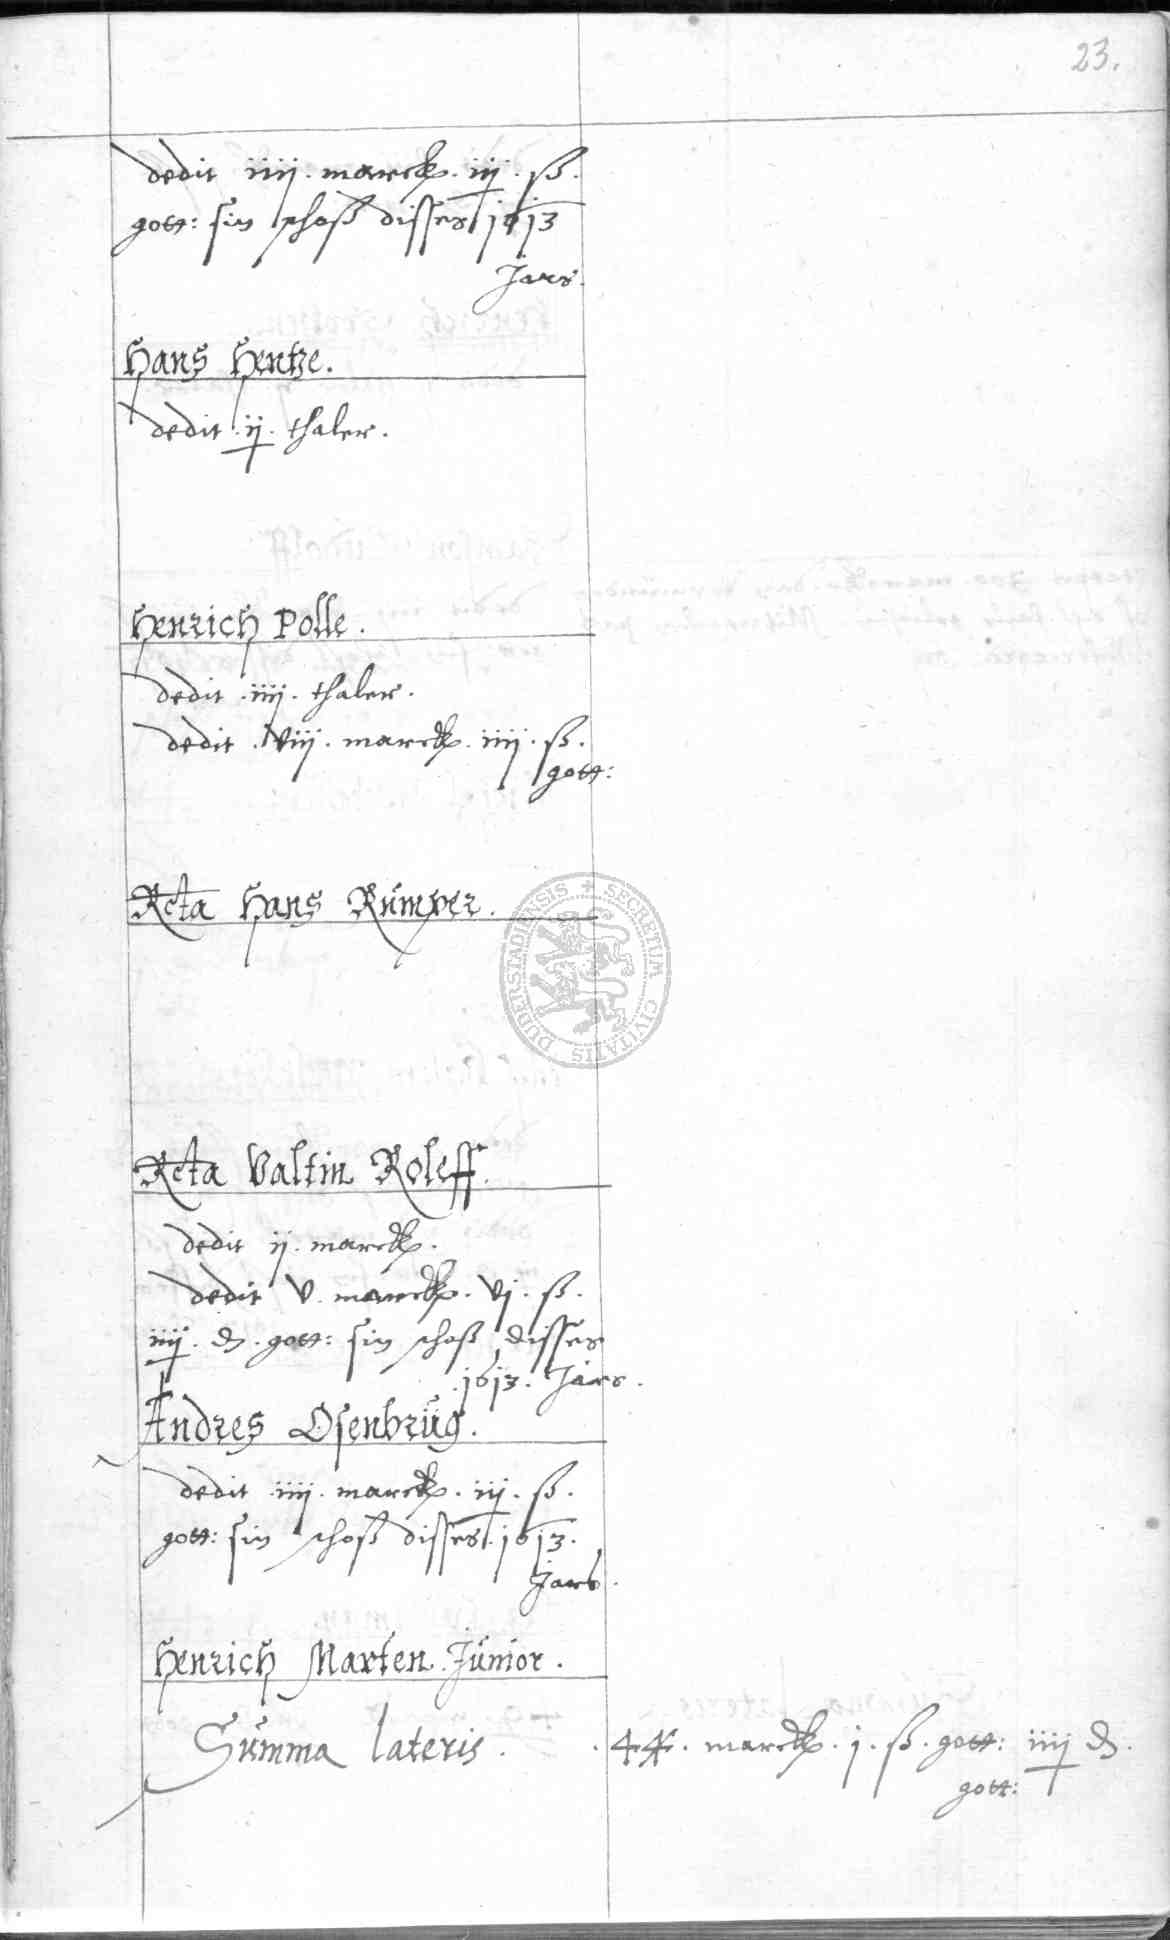 23.
dedit iiij. marck. iij. ß.
gott: sin schoß disses 1613
Jars.
Hans Hentze.
dedit .ij. thaler.
Henrich Polle.
dedit .iiij. thaler.
dedit .viij. marck. iiij. ß.
gott:
Rcta Hans Rümper.
SECRETUM CIVITATIS DUDERSTADIENSIS
Rcta Valtin Roleff.
dedit ij. marck.
dedit v. marck. vj. ß.
iiij. d. gott: sin schoß disses
.1613. Jars.
Andres Osenbrüg.
dedit .iiij. marck. iij. ß.
gott: sin schoß disses .1613.
Jars.
Henrich Marten Júnior.
Summa lateris. .44. marck. j. ß. gott: iiij d.
gott: